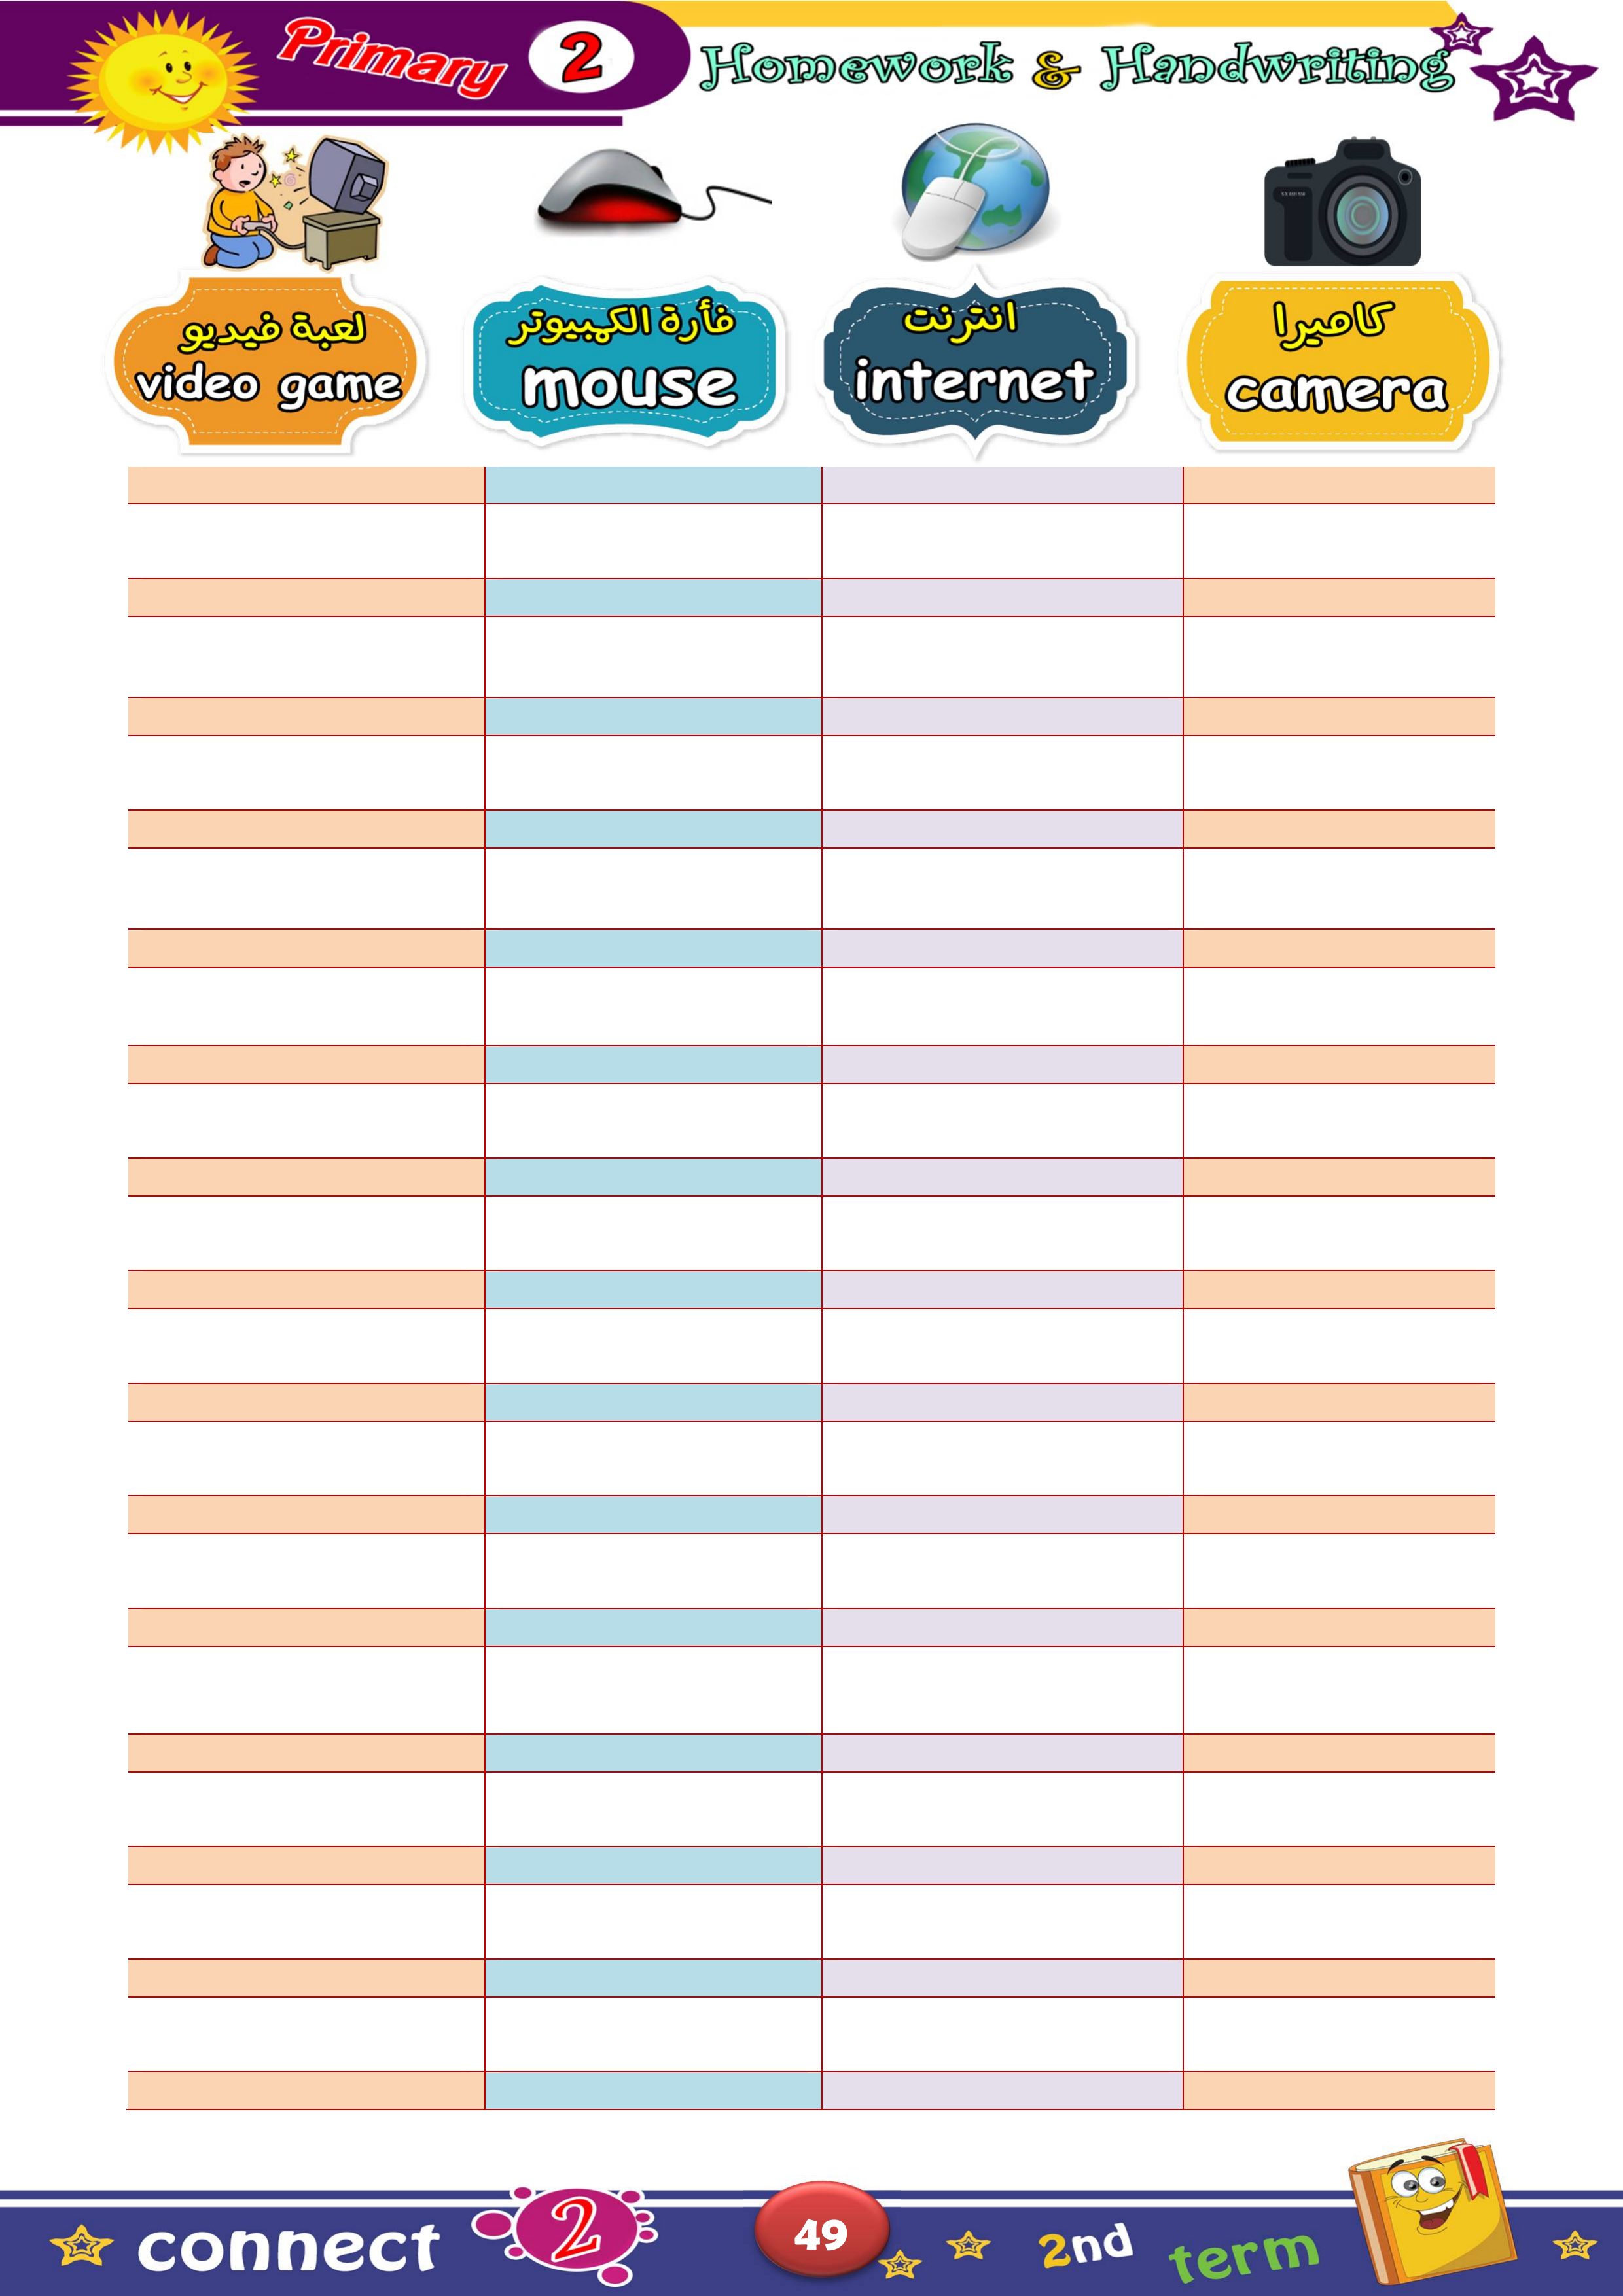 Primary 2 Homework & Handwriting
لعبة فيديو
video game
فأرة الكمبيوتر
mouse
انترنت
internet
كاميرا
camera
connect 2 49 2nd term